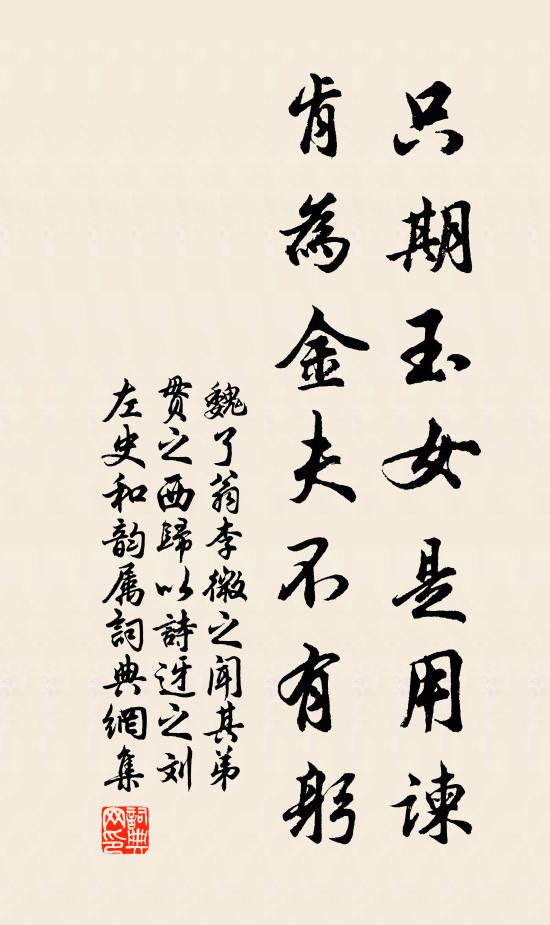 只期玉女是用諫
肯為金夫不有躬
魏了翁李微之聞其弟
貫之西歸以詩迓之刘
左史和韵属詞典網集
詞典网印